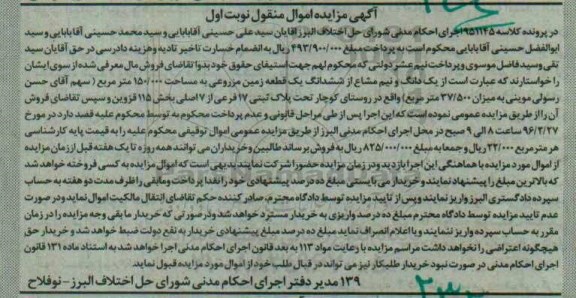 آگهی مزایده اموال منقول نوبت اول
در پرونده کلاسه ۹۵۱۱۴۵ اجرای احکام مدنی شورای حل اختلاف البرز آقایان سید علی حسینی آقابابایی و سید محمد حسینی آقابابایی و سید
ابوالفضل حسینی آقابابایی محکوم است به پرداخت مبلغ ۴۹۳/۹۰۰/۰۰۰ ریال به انضمام خسارت تاخیر تادیه و هزینه دادرسی در حق آقایان سید
تقی وسید فاضل موسوی و پرداخت نیم عشر دولتی که محکوم لهم جهت استیفای حقوق خود بدوا تقاضای فروش مال معرفی شده از سوی ایشان
را خواستارند که عبارت است از یک دانگ و نیم مشاع از ششدانگ یک قطعه زمین مزروعی به مساحت ۱۵۰/۰۰۰ متر مربع (سهم آقای حسن
رسولی موینی به میزان ۳۷/۵۰۰ متر مربع) واقع در روستای کوچار تحت پلاک ثبتی ۱۷ فرعی از ۷ اصلی بخش ۱۱۵ قزوین و سپس تقاضای فروش
آن را از طریق مزایده عمومی نموده است که این اجرا پس از طی مراحل قانونی و عدم پرداخت محکوم به توسط محکوم علیه قصد دارد در مورخ
۹۶/۲/۲۷ ساعت ۸ الی ۹ صبح در محل اجرای احکام مدنی البرز از طریق مزایده عمومی اموال توقیفی محکوم علیه را به قیمت پایه کارشناسی
هر متر مربع ۲۲/۰۰۰ ریال و جمعا به مبلغ ۸۲۵/۰۰۰/۰۰۰ ریال به فروش برساند طالبین و خریداران می توانند همه روزه تا یک هفته قبل از زمان مزایده
از اموال مورد مزایده با هماهنگی این اجرا بازدید و در زمان مزایده حضور اشرکت نمایند بدیهی است که اموال مزایده به کسی فروخته خواهد شد
که بالاترین مبلغ را پیشنهاد نمایند و خریدار می بایستی مبلغ ده درصد پیشنهادی خود را نقدا پرداخت و مابقی را ظرف مدت دو هفته به حساب
سپرده دادگستری البرز واریز نماید و پس از تایید مزایده توسط دادگاه محترم، صادر کننده حکم تقاضای انتقال مالکیت اموال نماید و در صورت
عدم تایید مزایده توسط دادگاه محترم مبلغ ده درصد واریزی به خریدار مسترد خواهد شد و در صورتی که خریدار ما بقی وجه مزایده را در زمان
مقرر به حساب سپرده واریز ننمایند و یا اعلام انصراف نماید مبلغ ده درصد مبلغ پیشنهادی خریدار به نفع دولت ضبط خواهد شد و خریدار حق
هیچگونه اعتراضی را نخواهد داشت مراسم مزایده با رعایت مواد ۱۱۳ به بعد قانون اجرای احکام مدنی اجرا خواهد شد به استناد ماده ۱۳۱ قانون
اجرای احکام مدنی در صورت نبود خریدار طلبکار نیز می تواند در قبال طلب خود از اموال مورد مزایده قبول نماید.
۱۳۹ مدیر دفتر اجرای احکام مدنی شورای حل اختلاف البرز - نوفلاح